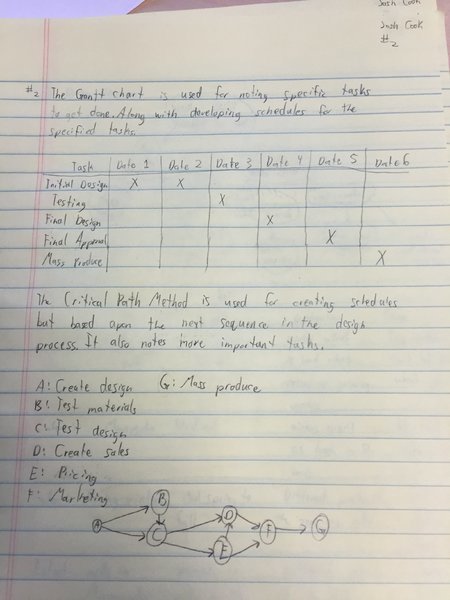 Josh Cook
Josh Cook
#2
#2 The Gantt chart is used for noting specific tasks
to get done. Along with developing schedules for the
specified tasks.
Task Date 1 Date 2 Date 3 Date 4 Date 5 Date 6
Initial Design X X
Testing X
Final Design X
Final Approval X
Mass Produce X
The Critical Path Method is used for creating schedules
but based upon the next sequence in the design
process. It also notes more important tasks.
A: Create design G: Mass produce
B: Test materials
C: Test design
D: Create sales
E: Pricing
F: Marketing
A B C D E F G